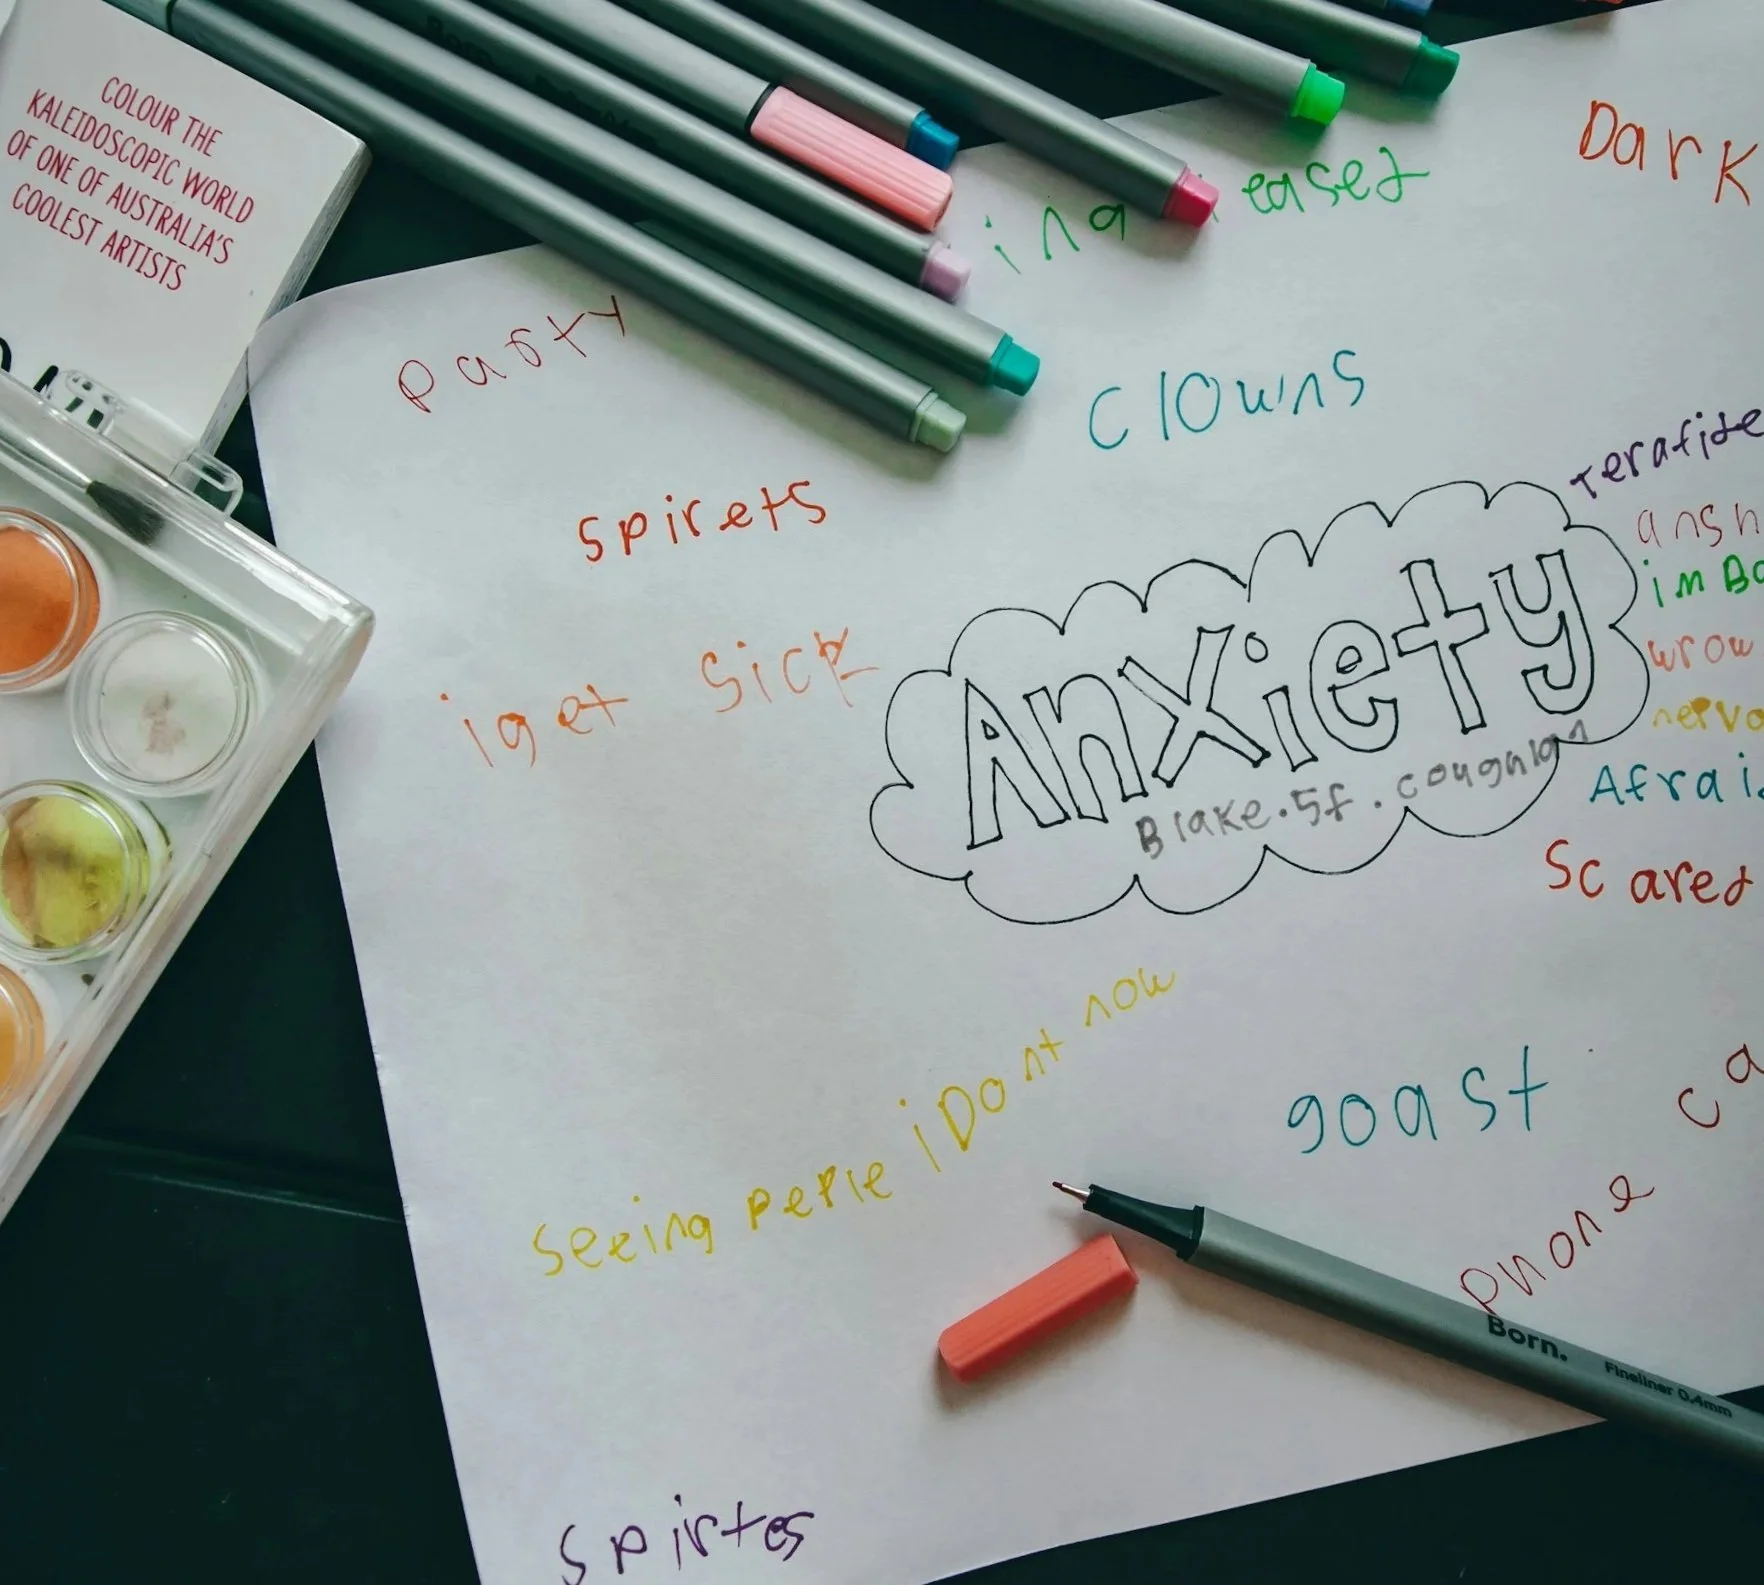 COLOUR THE
KALEIDOSCOPIC WORLD
OF ONE OF AUSTRALIA'S
COOLEST ARTISTS
Dark
party
Clowns
spirets
i get sick
Anxiety
Blake.5f.coughlan
Afrai
Scared
seeing peple i Dont now
goast
phone ca
Born.
Fineliner 0.4mm
spirtes